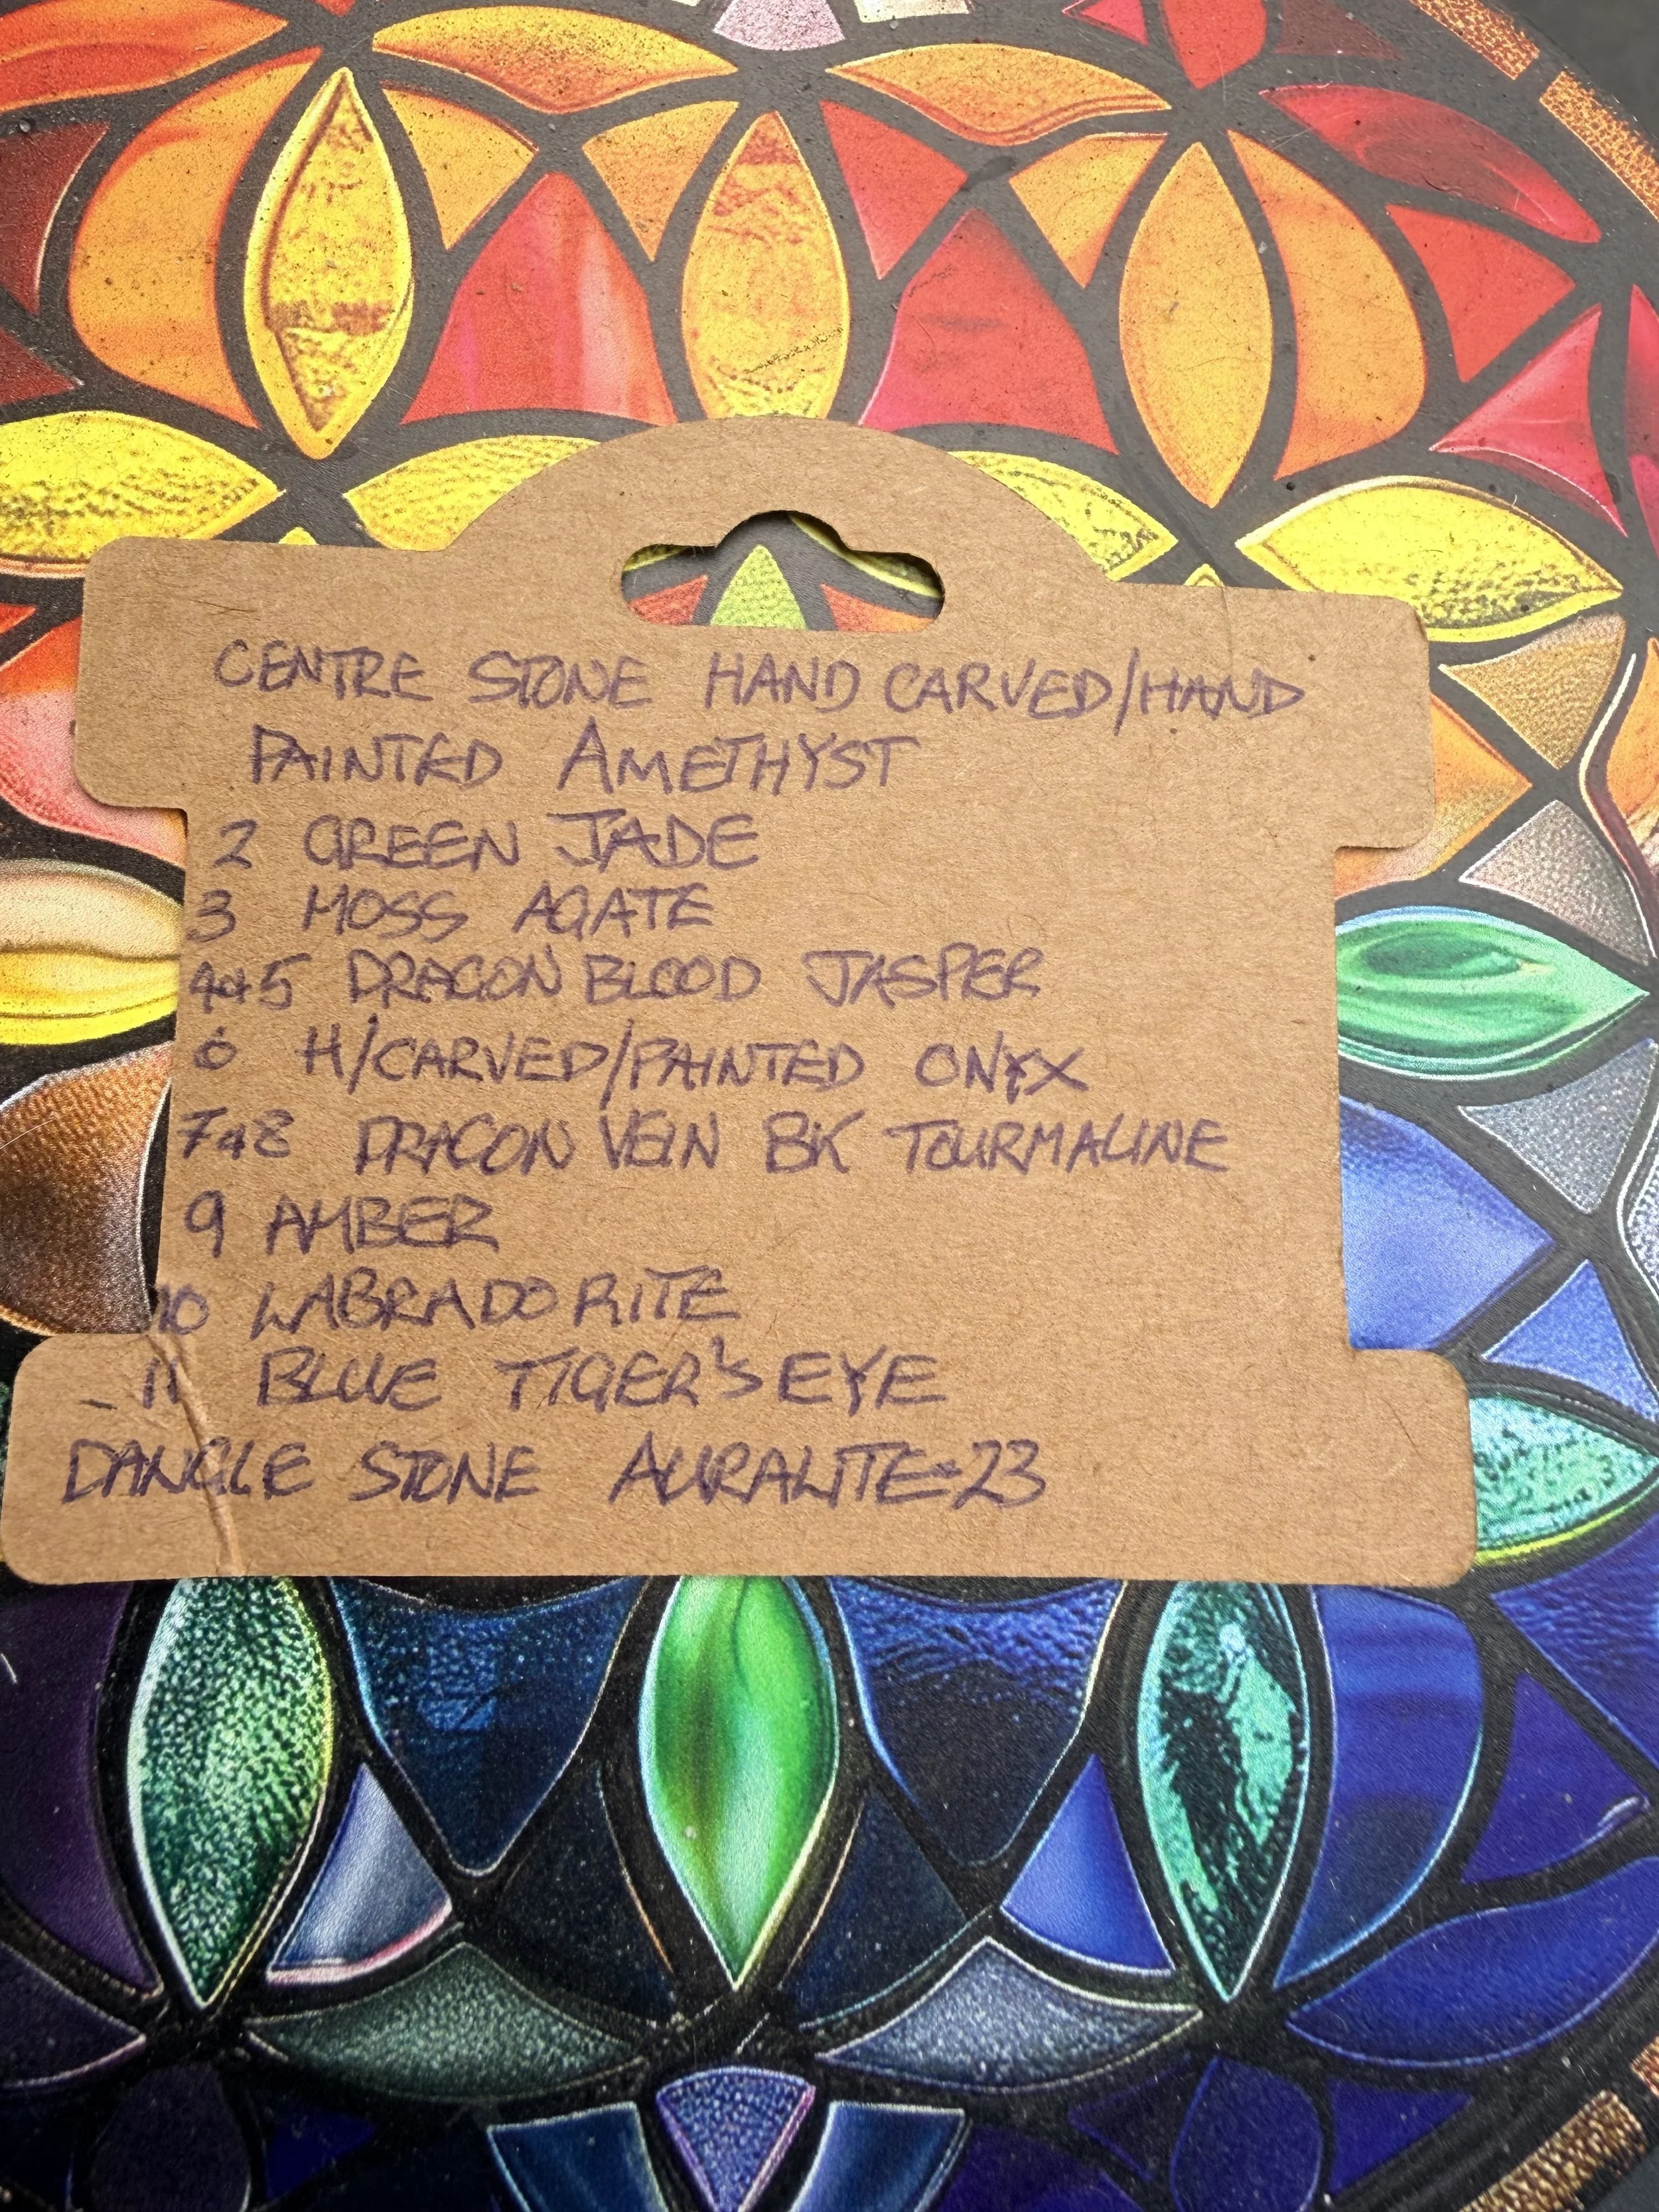 CENTRE STONE HAND CARVED/HAND
PAINTED AMETHYST
2 GREEN JADE
3 MOSS AGATE
4&5 DRAGON BLOOD JASPER
6 H/CARVED/PAINTED ONYX
7&8 DRAGON VEIN BK TOURMALINE
9 AMBER
10 LABRADORITE
11 BLUE TIGER'S EYE
DANGLE STONE AURALITE-23